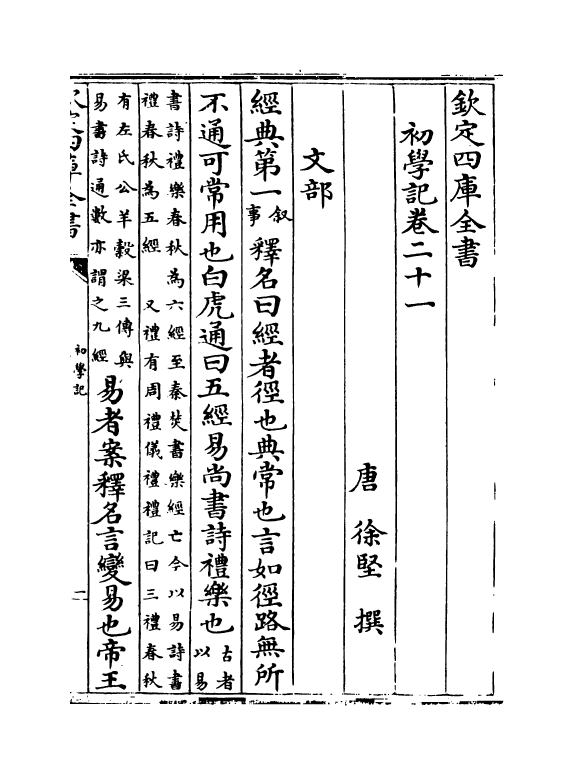 欽定四庫全書
初學記卷二十一
唐 徐堅 撰
文部
經典第一 叙事 釋名曰經者徑也典常也言如徑路無所
不通可常用也白虎通曰五經易尚書詩禮樂也 古者以易
書詩禮樂春秋為六經至秦焚書樂經亡今以易詩書
禮春秋為五經 又禮有周禮儀禮禮記曰三禮春秋
有左氏公羊穀梁三傳與
易書詩通數亦謂之九經
易者案釋名言變易也帝王
欽定四庫全書
初學記